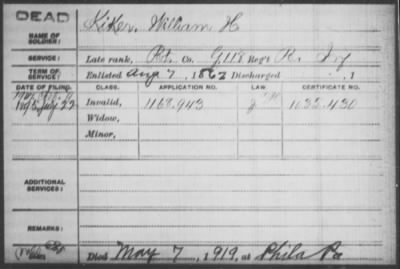 DEAD
NAME OF SOLDIER: Kiker, William H
SERVICE: Late rank, Pvt. Co. G, 118 Reg't Pa. Inf
TERM OF SERVICE: Enlisted Aug 7, 1862 Discharged , 1
DATE OF FILING. CLASS. APPLICATION NO. LAW. CERTIFICATE NO.
1895 July 22 Invalid, 1168.943 1032.430
Widow,
Minor,
ADDITIONAL SERVICES:
REMARKS:
Died May 7, 1919, at Phila Pa